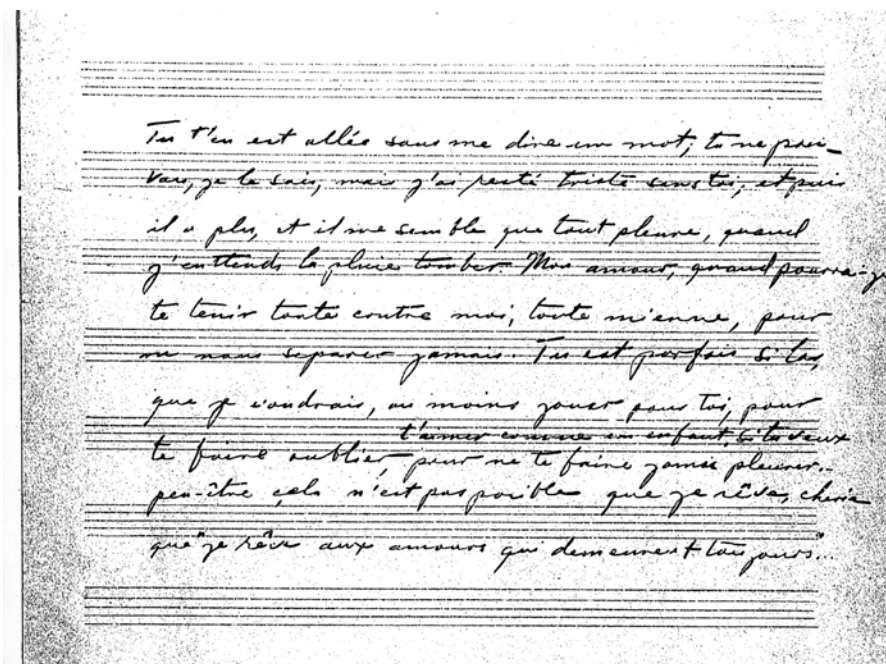 Tu t'en est allée sans me dire un mot; tu ne pou-
vais, je le sais, mais j'ai resté triste sans toi, et puis
il a plu, et il me semble que tout pleure, quand
j'enttends la pluie tomber. Mon amour, quand pourra-je
te tenir toute contre moi, toute mienne, pour
ne nous separer jamais. Tu est parfois si las,
que je voudrais, au moins jouer pour toi, pour
t'aimer comme un enfant, si tu veux
te faire oublier, pour ne te faire jamais pleurer..
peu-être cela n'est pas posible que je rêve, cherie
que "je rêve aux amours qui demeurent toujours"...